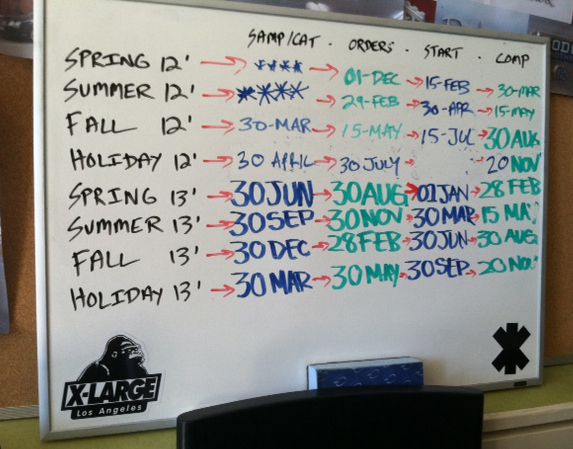 SAMP/CAT · ORDERS · START · COMP
SPRING 12' → **** → 01-DEC → 15-FEB → 30-MAR
SUMMER 12' → **** → 29-FEB → 30-APR → 15-MAY
FALL 12' → 30-MAR → 15-MAY → 15-JUL → 30 AUG
HOLIDAY 12' → 30 APRIL → 30 JULY → 20 NOV
SPRING 13' → 30 JUN → 30 AUG → 01 JAN → 28 FEB
SUMMER 13' → 30 SEP → 30 NOV → 30 MAR → 15 MAY
FALL 13' → 30 DEC → 28 FEB → 30 JUN → 30 AUG
HOLIDAY 13' → 30 MAR → 30 MAY → 30 SEP → 20 NOV
X-LARGE
Los Angeles